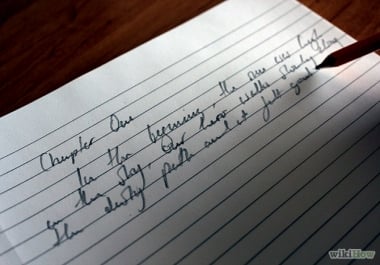 Chapter One
In the beginning, the sun was hot
in the sky. Our hero walks slowly along
the dusty path and it felt good
wikiHow